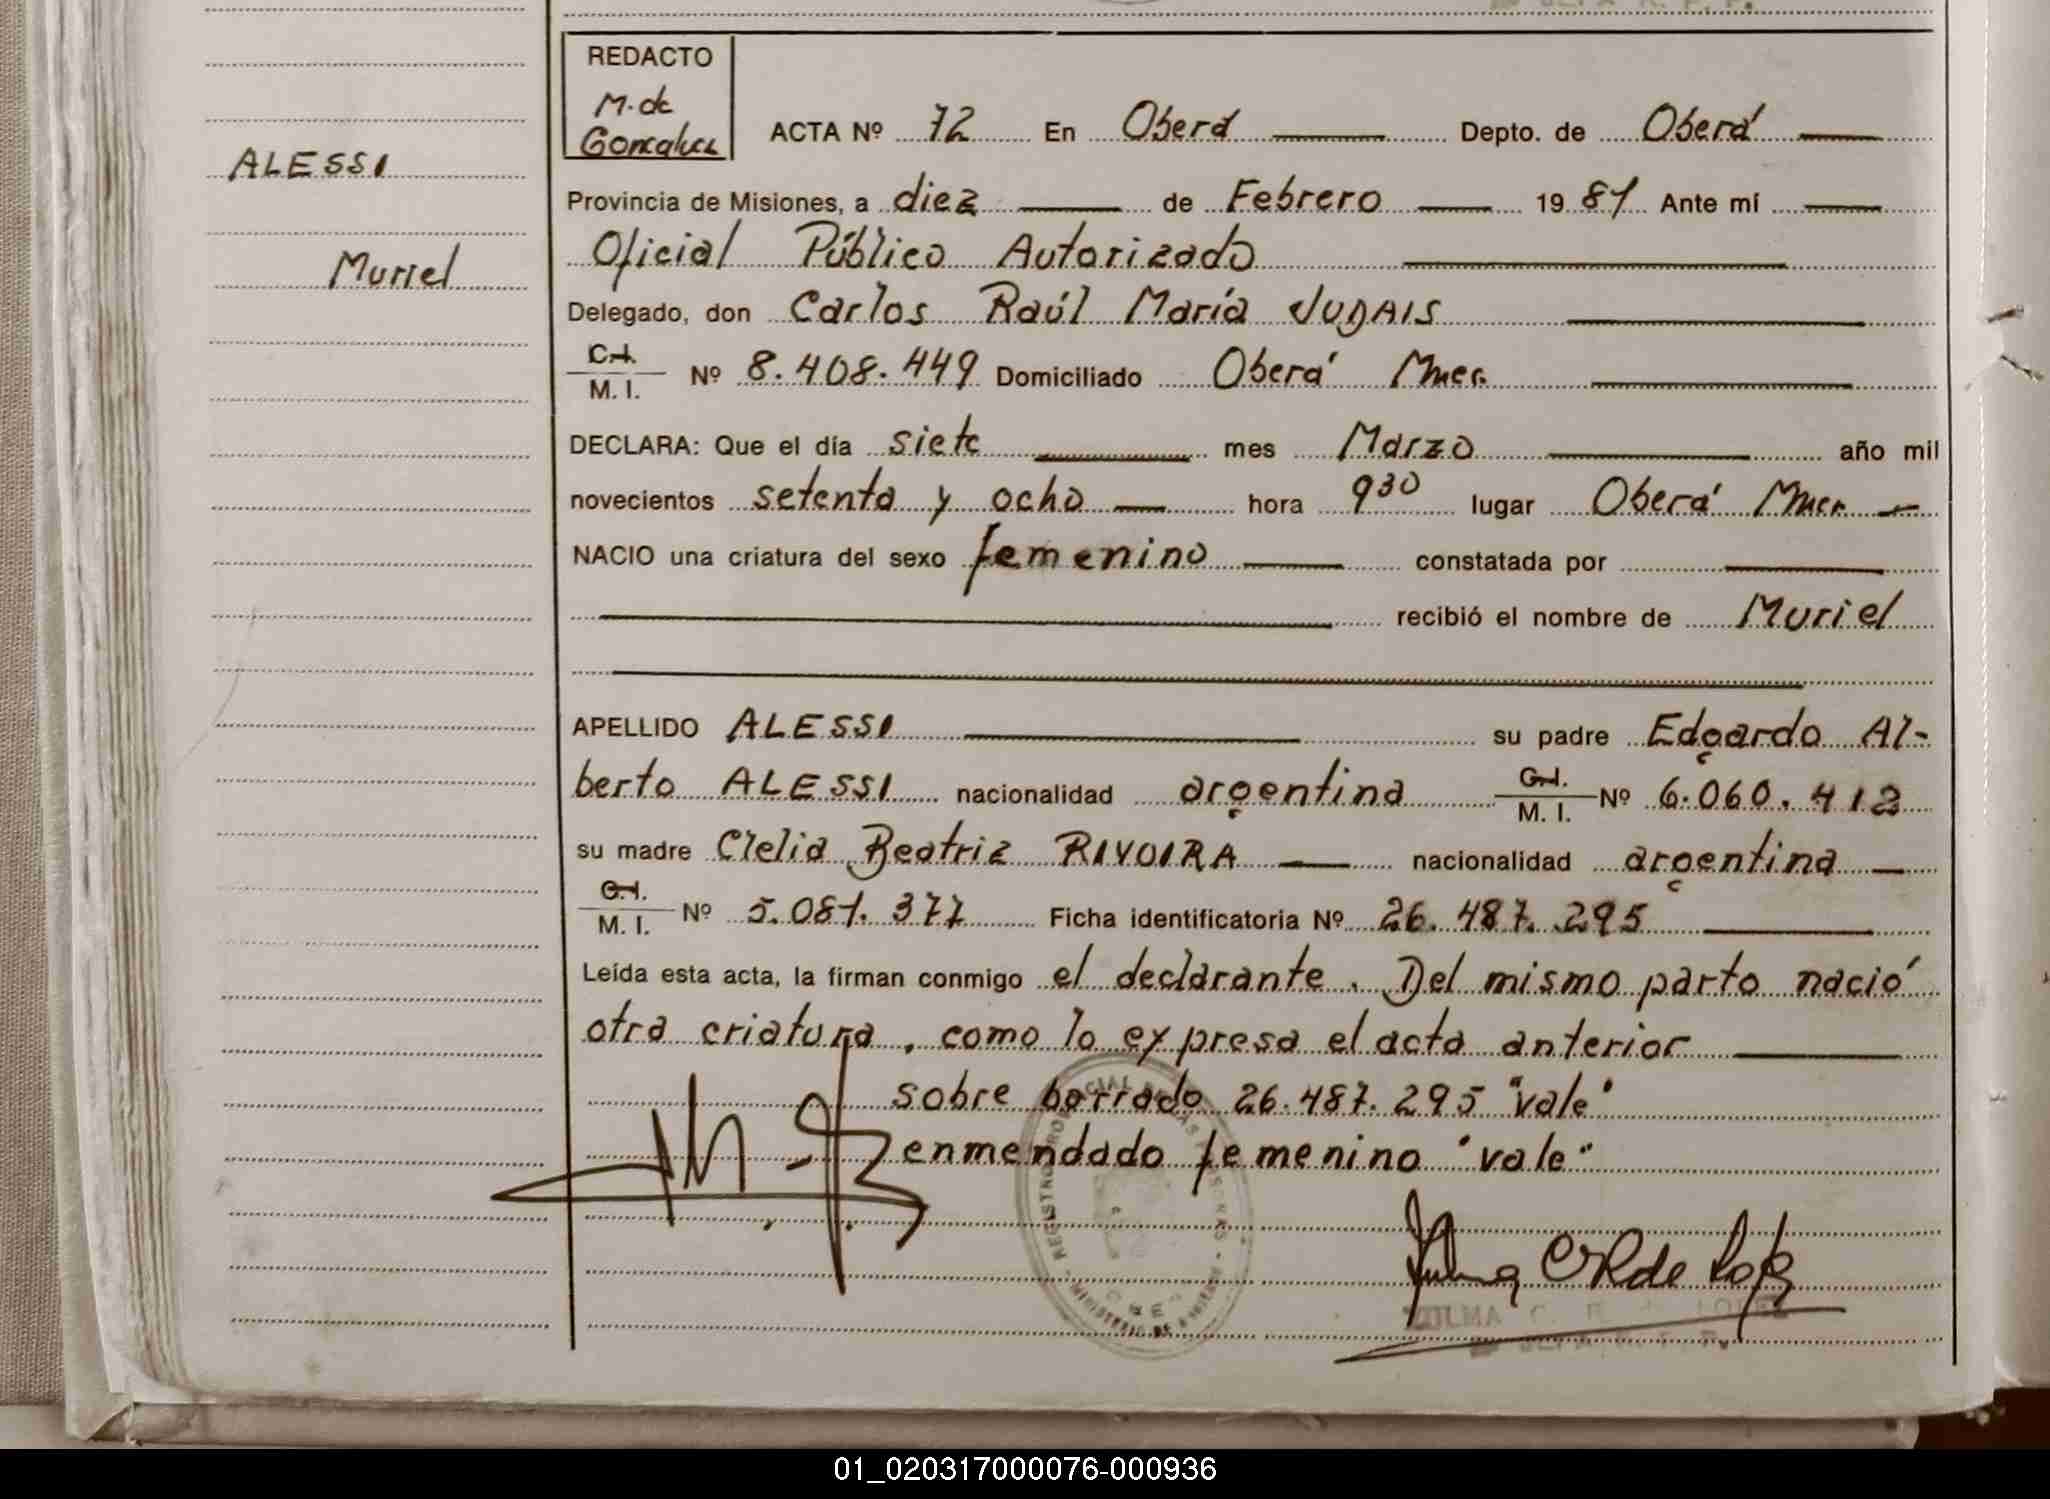 REDACTO
M. de
Goncalves
ACTA Nº 72 En Oberá Depto. de Oberá
ALESSI
Provincia de Misiones, a diez de Febrero 1981 Ante mí
Muriel
Oficial Público Autorizado
Delegado, don Carlos Raúl María JUDAIS
C.I.
M. I. Nº 8.408.449 Domiciliado Oberá Mnes.
DECLARA: Que el día siete mes Marzo año mil
novecientos setenta y ocho hora 930 lugar Oberá Mnes.
NACIO una criatura del sexo femenino constatada por
recibió el nombre de Muriel
APELLIDO ALESSI su padre Edgardo Al-
berto ALESSI nacionalidad argentina C.I. M. I. Nº 6.060.412
su madre Clelia Beatriz RIVOIRA nacionalidad argentina
C.I.
M. I. Nº 5.081.377 Ficha identificatoria Nº 26.487.295
Leída esta acta, la firman conmigo el declarante. Del mismo parto nació
otra criatura, como lo expresa el acta anterior
sobre borrado 26.487.295 "vale"
enmendado femenino "vale"
01_020317000076-000936